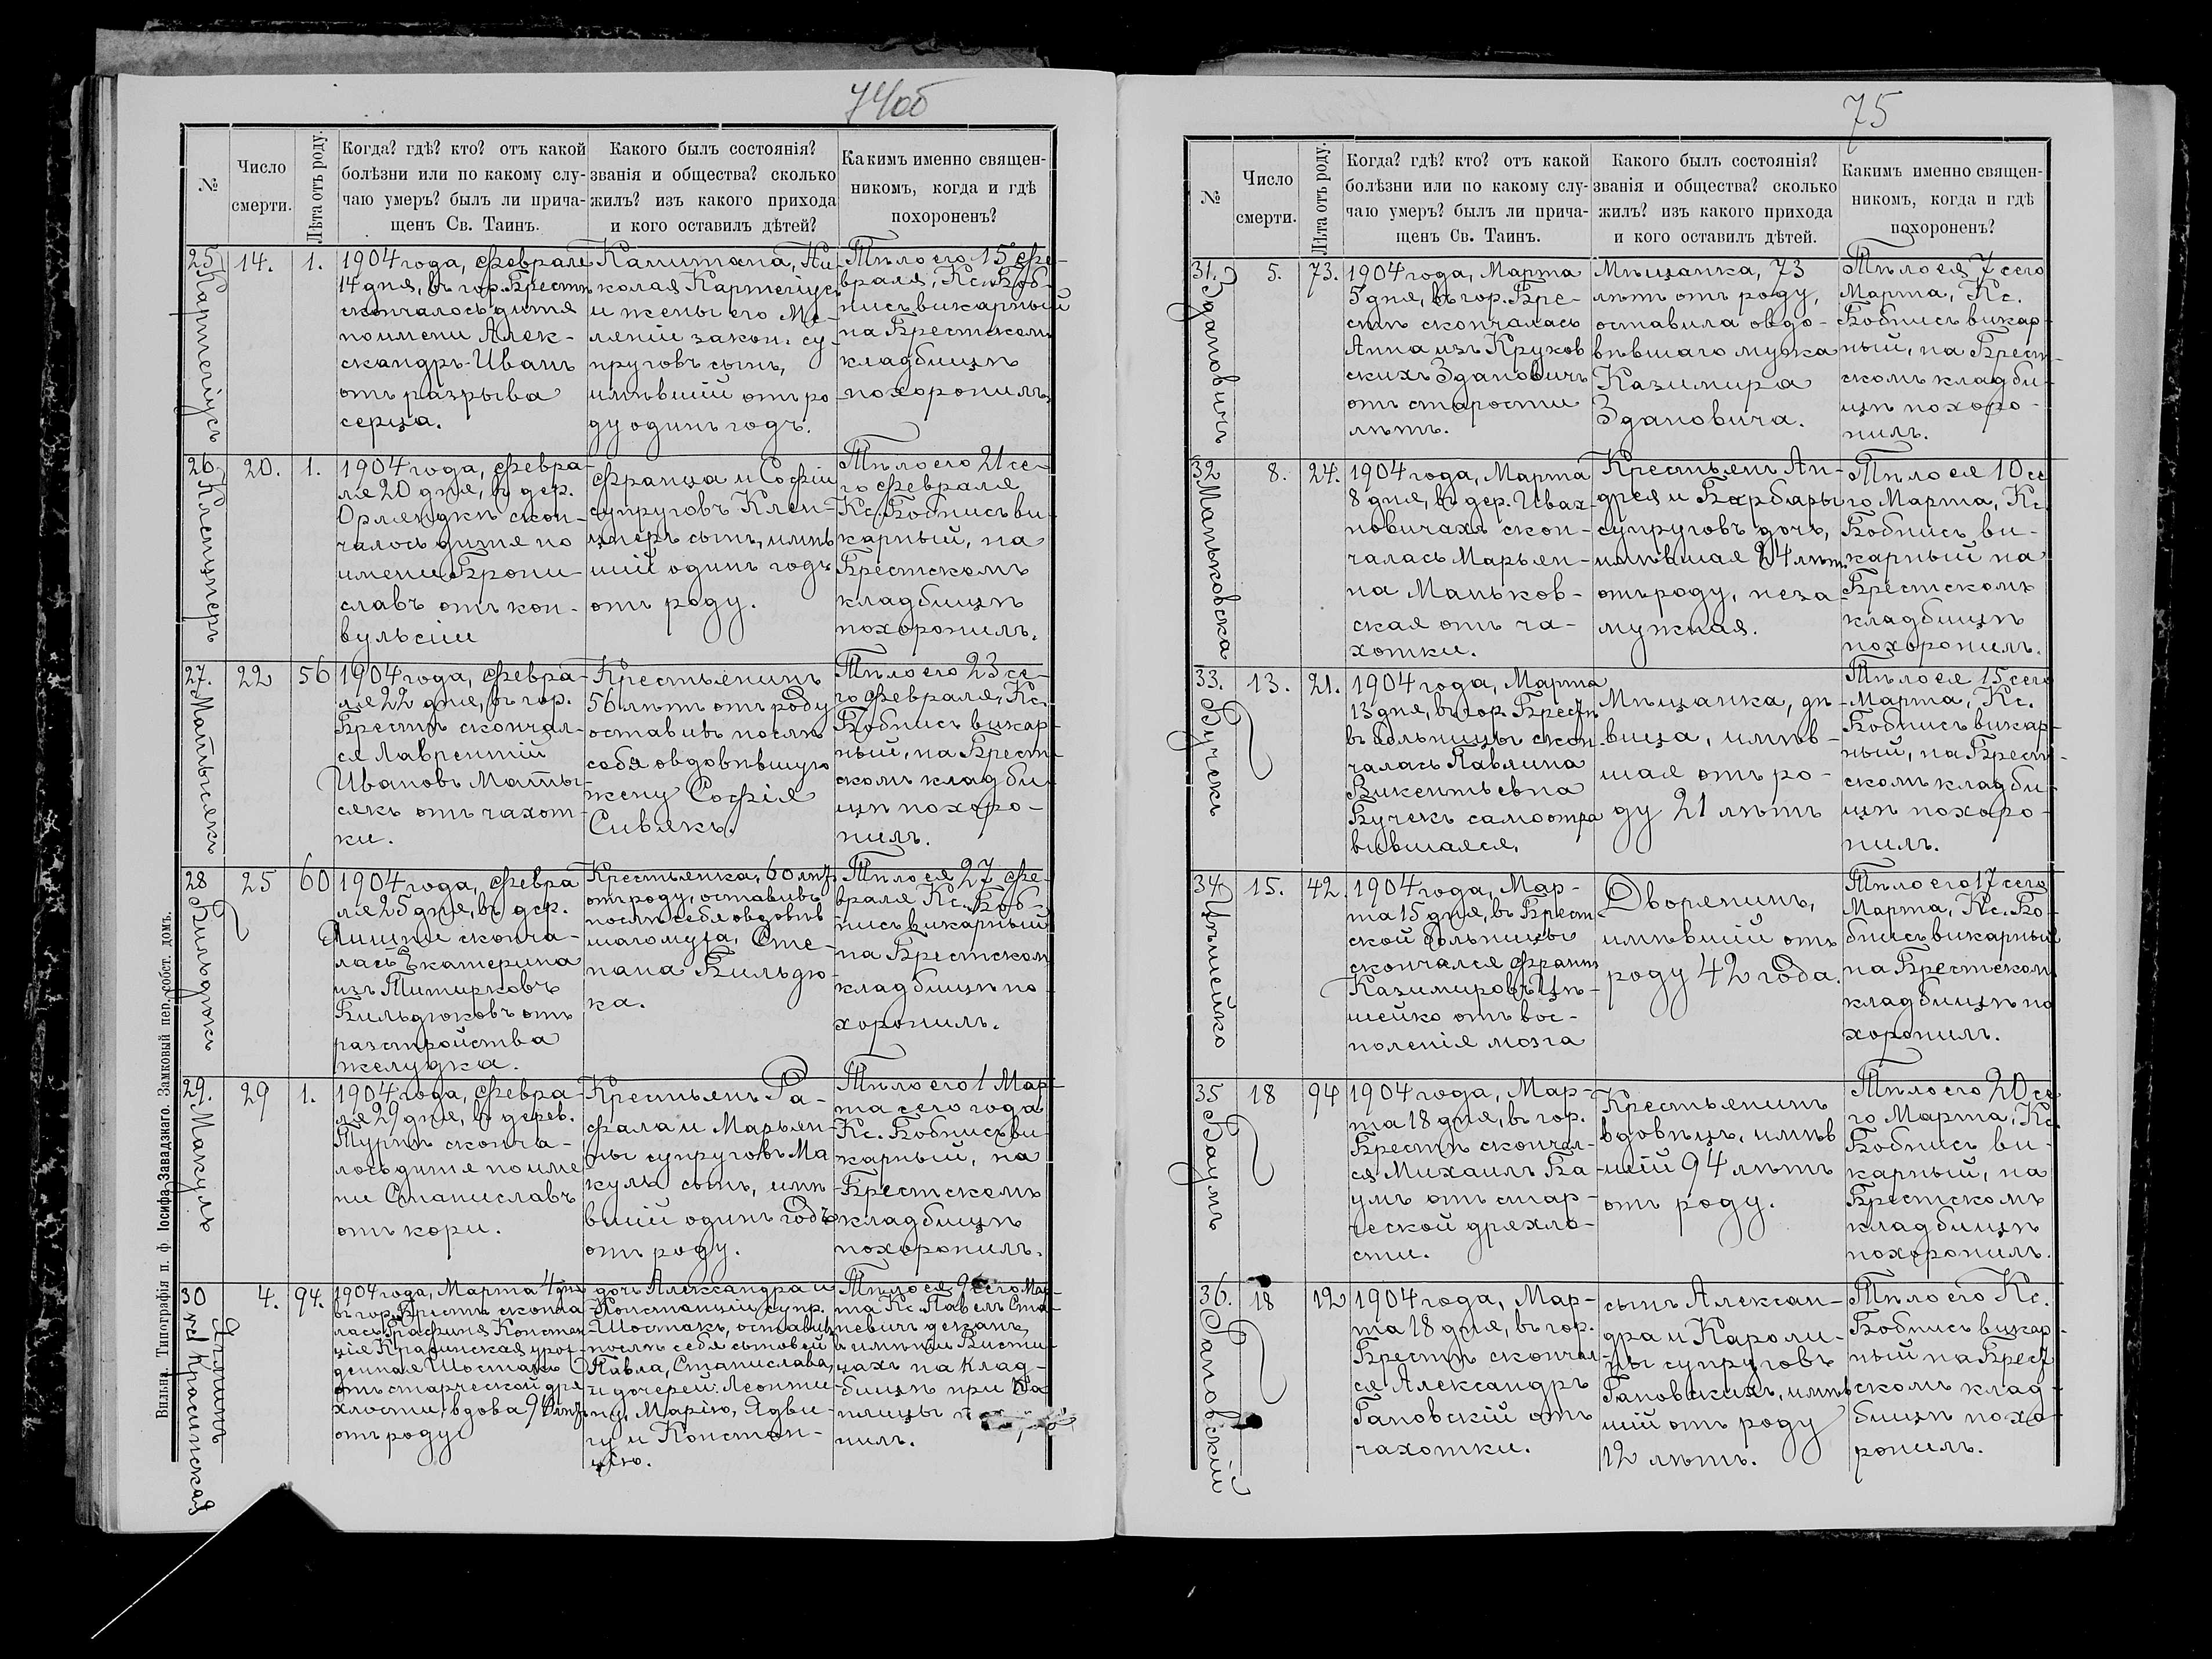 74об
№
Число
смерти.
Лѣта отъ роду.
Когда? гдѣ? кто? отъ какой
болѣзни или по какому слу-
чаю умеръ? былъ ли прича-
щенъ Св. Таинъ.
Какого былъ состоянія?
званія и общества? сколько
жилъ? изъ какого прихода
и кого оставилъ дѣтей?
Какимъ именно священ-
никомъ, когда и гдѣ
похороненъ?
25
Картегіусъ
14.
1.
1904 года, Февраля
14 дня, въ гор. Брестѣ
скончалось дитя
по имени Алек-
сандръ-Иванъ
отъ разрыва
серца.
Капитана, Ни-
колая Картегіусъ
и жены его Ме-
леніи закон. су-
пруговъ сынъ,
имѣвшій отъ ро
ду одинъ годъ.
Тѣло его 15 Фе-
враля, Кс. Боб-
нисъ викарный
на Брестскомъ
кладбищѣ
похоронилъ.
26
Клемцнеръ
20.
1.
1904 года, Февра-
ля 20 дня, въ дер.
Орлянкѣ скон-
чалось дитя по
имени Брони-
славъ отъ кон-
вульсіи
Франца и Софіи
супруговъ Клем-
цнеръ сынъ, имѣв
шій одинъ годъ
отъ роду.
Тѣло его 21 се-
го Февраля
Кс. Бобнисъ ви-
карный, на
Брестскомъ
кладбищѣ
похоронилъ.
27.
Матысякъ
22
56
1904 года, Февра-
ля 22 дня, въ гор.
Брестѣ скончал-
ся Лаврентій
Ивановъ Маты-
сякъ отъ чахот-
ки.
Крестьянинъ
56 лѣтъ отъ роду
оставивъ послѣ
себя овдовѣвшую
жену Софія
Сивякъ.
Тѣло его 23 се-
го Февраля, Кс.
Бобнисъ викар-
ный, на Брест-
скомъ кладби-
щѣ похоро-
нилъ.
28
Бильдюкъ
25
60
1904 года, Февра
ля 25 дня, въ дер.
сконча-
лась Екатерина
изъ Титирковъ
Бильдюковъ отъ
разстройства
желудка.
Крестьянка, 60 лѣтъ
отъ роду, оставивъ
послѣ себя овдовѣв
шаго мужа, Сте-
пана Бильдю
ка.
Тѣло ея 27 Фе-
враля Кс. Боб-
нисъ викарный
на Брестском
кладбищѣ по-
хоронилъ.
29.
Макулъ
29
1.
1904 года, Февра-
ля 29 дня, въ дерев.
Турнѣ сконча-
лось дитя по име
ни Станиславъ
отъ кори.
Крестьянъ Ра-
фала и Марьян-
ны супруговъ Ма
куль сынъ, имѣ
вшій одинъ годъ
отъ роду.
Тѣло его 1 Мар-
та сего года
Кс. Бобнисъ ви-
карный, на
Брестскомъ
кладбищѣ
похоронилъ.
30
Красинская
4.
94.
1904 года, Марта 4 дня
въ гор. Брестѣ сконча
лась Графиня Констан
ція Красинская урож
денная Шостакъ
отъ старческой дря
хлости, вдова 94 лѣтъ
отъ роду
дочь Александра и
Констанціи супр.
Шостакъ, оставивъ
послѣ себя сыновей
Павла, Станислава,
и дочерей: Леонти
ну, Марію, Ядви-
гу и Констан-
цію.
Тѣло ея 9 сего Мар-
та Кс. Павелъ Ста-
невичъ деканъ,
въ имѣніи Висти-
цахъ на клад-
бищѣ при Ка
плицы
нилъ.
Вильна. Типографія п. ф. Іосифа Завадзкаго. Замковый пер. собст. домъ.
75
№
Число
смерти.
Лѣта отъ роду.
Когда? гдѣ? кто? отъ какой
болѣзни или по какому слу-
чаю умеръ? былъ ли прича-
щенъ Св. Таинъ.
Какого былъ состоянія?
званія и общества? сколько
жилъ? изъ какого прихода
и кого оставилъ дѣтей.
Какимъ именно священ-
никомъ, когда и гдѣ
похороненъ?
31.
Здановичъ
5.
73.
1904 года, Марта
5 дня, въ гор. Бре-
стѣ скончалась
Анна изъ Круков
скихъ Здановичъ
отъ старости
лѣтъ.
Мѣщанка, 73
лѣтъ отъ роду,
оставила овдо-
вѣвшаго мужа
Казимира
Здановича.
Тѣло ея 7 сего
Марта, Кс.
Бобнисъ викар-
ный, на Брест-
скомъ кладби-
щѣ похоро-
нилъ.
32
Маньковска
8.
24.
1904 года, Марта
8 дня, въ дер. Ивах-
новичахъ скон-
чалась Марьян-
на Маньков-
ская отъ ча-
хотки.
Крестьянъ Ан-
дрея и Барбары
супруговъ дочь,
имѣвшая 24 лѣт.
отъ роду, неза-
мужная.
Тѣло ея 10 се
го Марта, Кс.
Бобнисъ ви-
карный на
Брестскомъ
кладбищѣ
похоронилъ.
33.
Бучекъ
13.
21.
1904 года, Марта
13 дня, въ гор. Брестѣ
въ больницы скон-
чалась Павлина
Викентьевна
Бучекъ самоотра
вившаяся.
Мѣщанка, дѣ-
вица, имѣв-
шая отъ ро-
ду 21 лѣтъ
Тѣло ея 15 сего
Марта, Кс.
Бобнисъ викар-
ный, на Брест-
скомъ кладби-
щѣ похоро-
нилъ.
34
Цѣшейко
15.
42.
1904 года, Мар-
та 15 дня, въ Брест-
ской больницы
скончался Францъ
Казимировъ Цѣ-
шейко отъ вос-
поленія мозга
Дворянинъ,
имѣвшій отъ
роду 42 года.
Тѣло его 17 сего
Марта, Кс. Бо-
бнисъ викарный
на Брестском
кладбищѣ по
хоронилъ.
35
Баумъ
18
94
1904 года, Мар-
та 18 дня, въ гор.
Брестѣ скончал-
ся Михаилъ Ба
умъ отъ стар-
ческой дряхло-
сти.
Крестьянинъ
вдовецъ, имѣв
шій 94 лѣтъ
отъ роду.
Тѣло его 20 се
го Марта, Кс.
Бобнисъ ви-
карный, на
Брестскомъ
кладбищѣ
похоронилъ.
36.
Гановскій
18
12
1904 года, Мар-
та 18 дня, въ гор.
Брестѣ скончал
ся Александръ
Гановскій отъ
чахотки.
сынъ Алексан-
дра и Кароли-
ны супруговъ
Гановскихъ, имѣв
шій отъ роду
12 лѣтъ.
Тѣло его Кс.
Бобнисъ викар-
ный на Брест
скомъ клад-
бищѣ похо-
ронилъ.